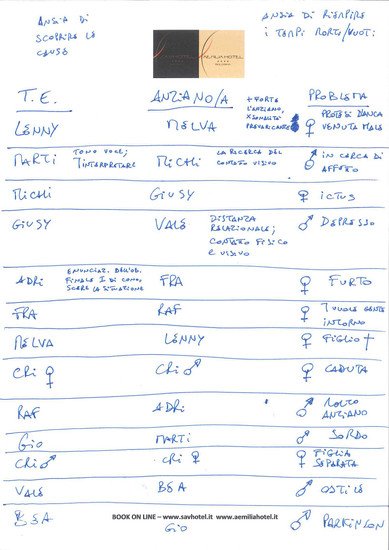 ANSIA DI
SCOPRIRE LE
CAUSE
ANSIA DI RIEMPIRE
I TEMPI MORTI/VUOTI:
SAVHOTEL
AEMILIA HOTEL
T.E.
ANZIANO/A
+ FORTE
L'ANZIANO,
X SONALITÀ
PREVARICANTE
PROBLEMA
LENNY
MELVA
♀ PROTESI D'ANCA
VENUTA MALE
MARTI
TONO VOCE;
INTERPRETARE
MICHI
LA RICERCA DEL
CONTATTO VISIVO
♂ IN CERCA DI
AFFETTO
MICHI
GIUSY
♀ ICTUS
GIUSY
VALE
DISTANZA
RELAZIONALE;
CONTATTO FISICO
E VISIVO
♂ DEPRESSO
ADRI
ENUNCIAZ. DELL'OB.
FINALE
SCARE LA SITUAZIONE
FRA
♀ FURTO
FRA
RAF
♀ VUOLE GENTE
INTORNO
MELVA
LENNY
♀ FIGLIO †
CRI ♀
CRI ♂
♀ CADUTA
RAF
ADRI
♂ MOLTO
ANZIANO
GIO
MARTI
♂ SORDO
CRI ♂
CRI ♀
♀ FIGLIA
SEPARATA
VALE
BEA
♂ OSTILE
BEA
GIO
♂ PARKINSON
BOOK ON LINE – www.savhotel.it www.aemiliahotel.it